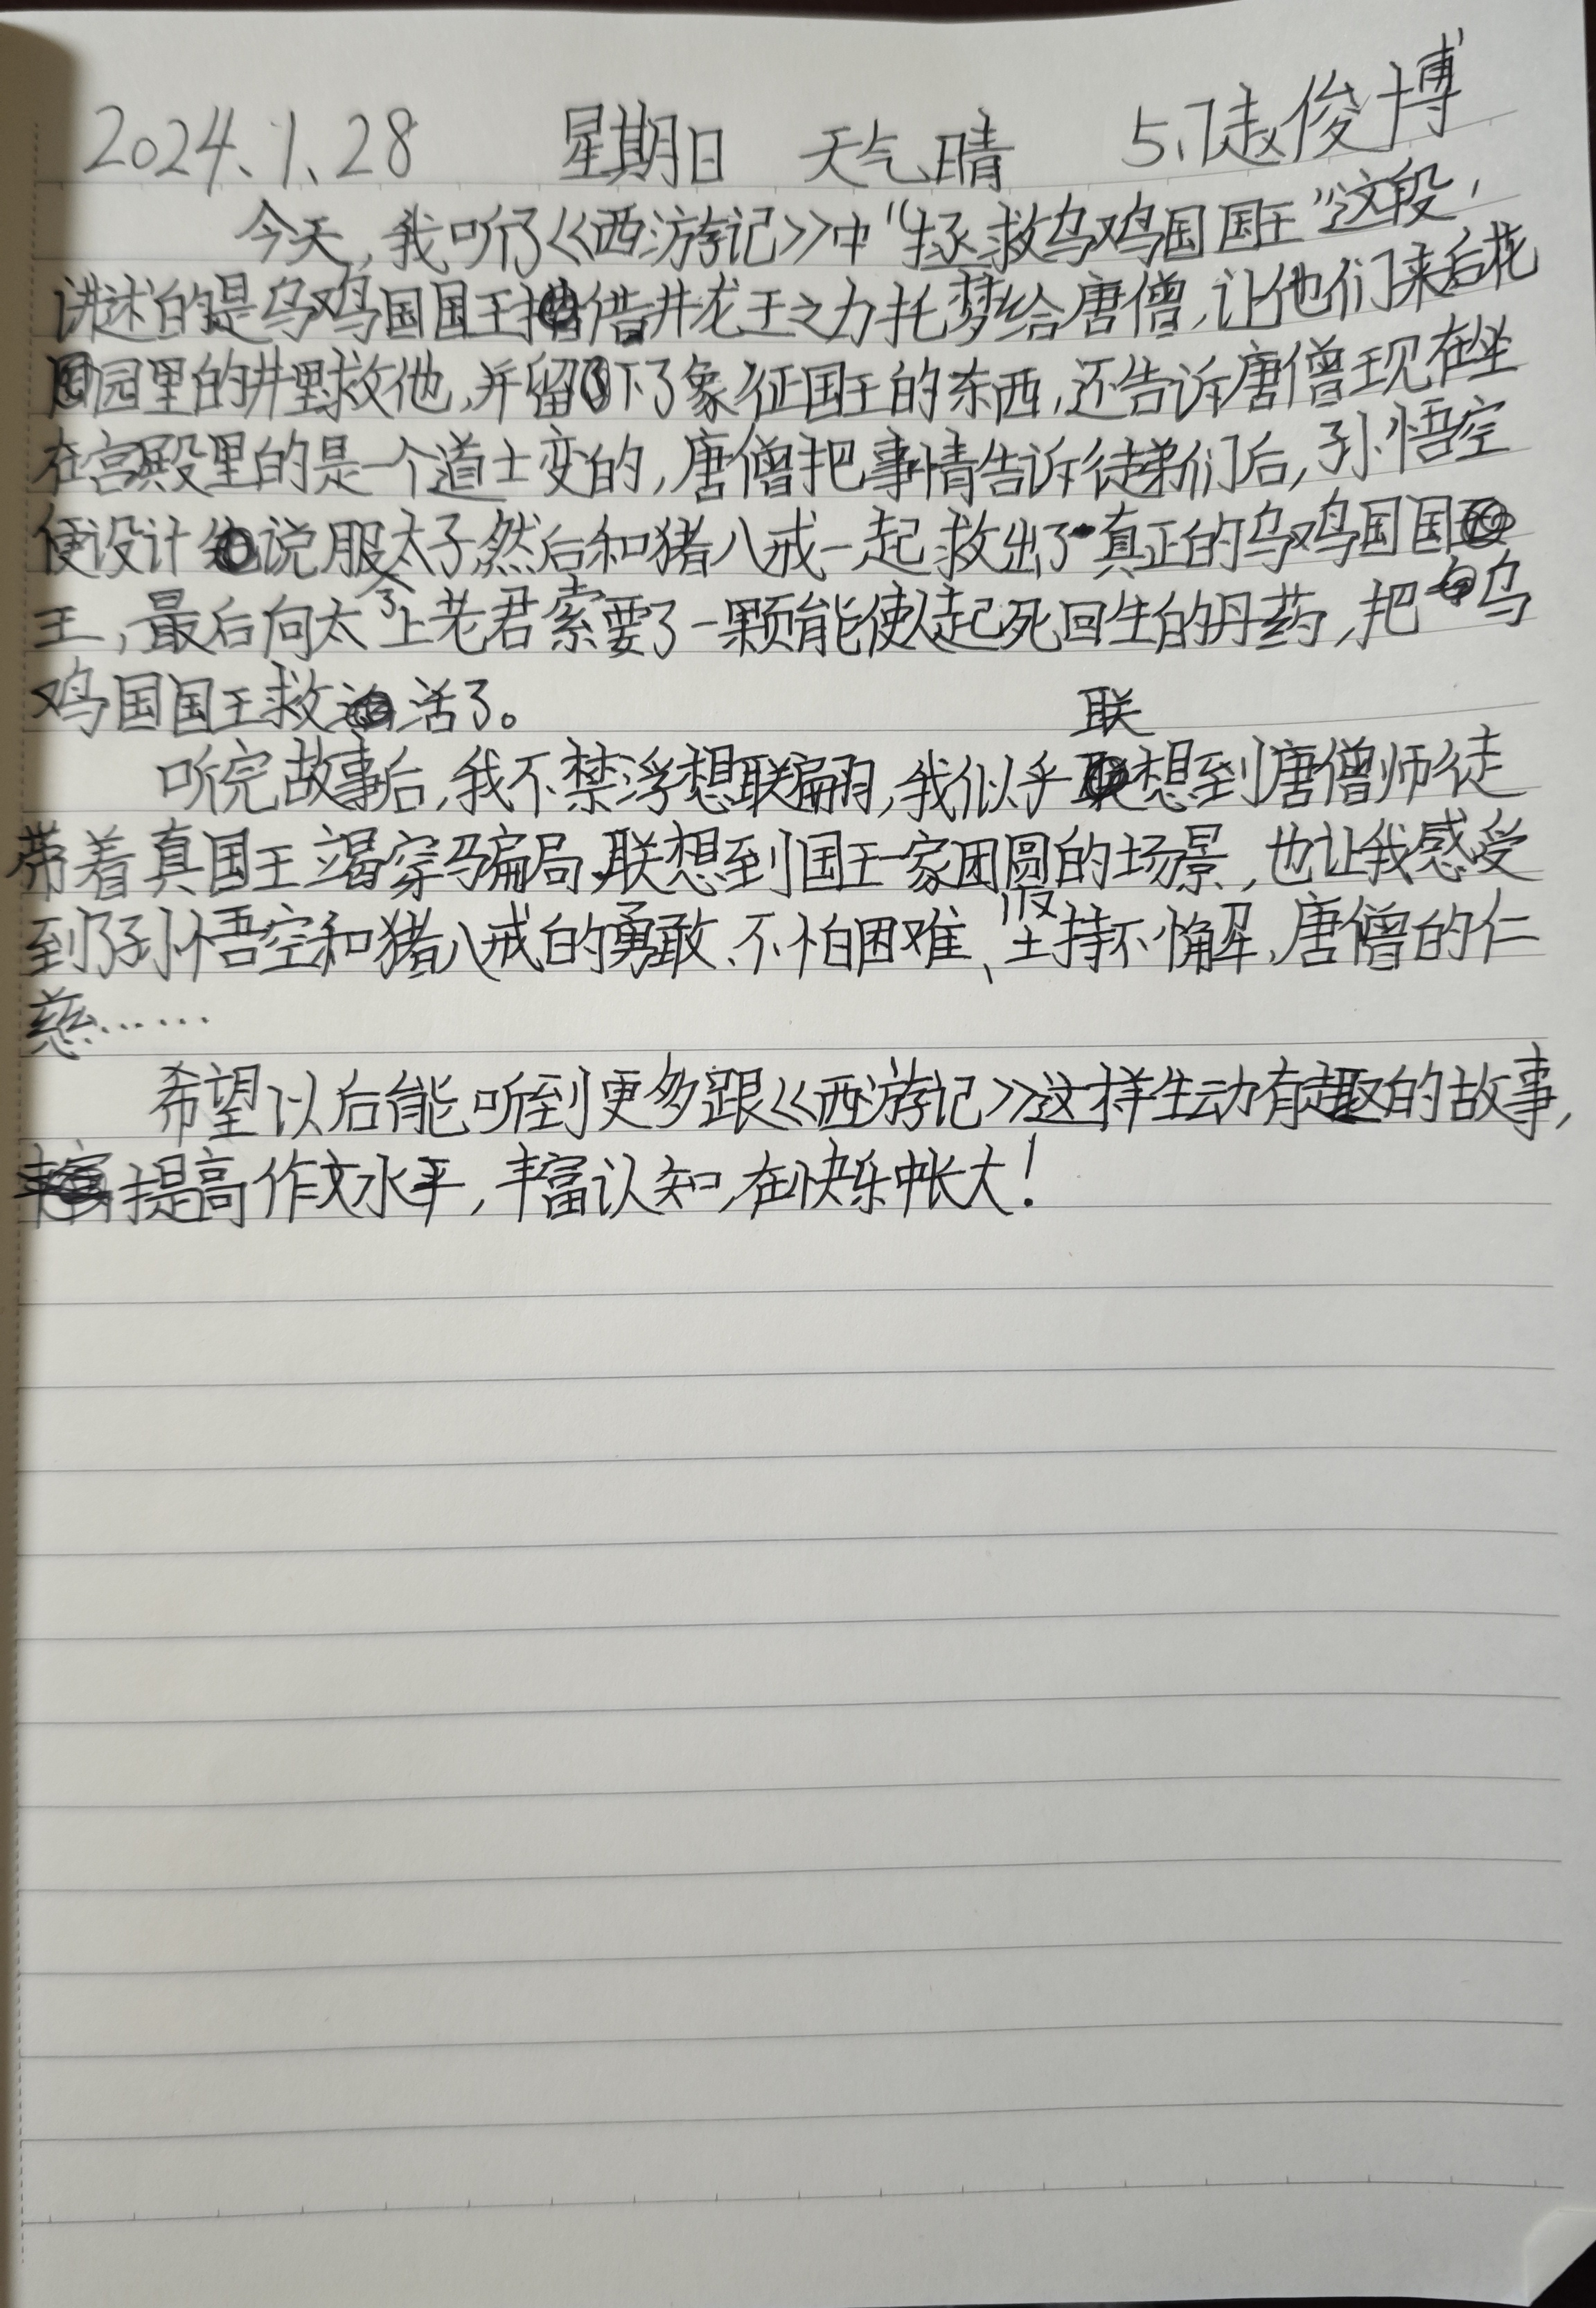 2024.1.28 星期日 天气晴 5.1赵俊博
今天,我听了《西游记》中“拯救乌鸡国国王”这段,
讲述的是乌鸡国国王借井龙王之力托梦给唐僧,让他们来后花
园里的井里救他,并留下了象征国王的东西,还告诉唐僧现在坐
在宫殿里的是一个道士变的,唐僧把事情告诉徒弟们后,孙悟空
便设计说服太子,然后和猪八戒一起救出了真正的乌鸡国国
王,最后向太上老君索要了一颗能使人起死回生的丹药,把乌
鸡国国王救活了。
听完故事后,我不禁浮想联翩,我似乎联想到唐僧师徒
带着真国王竭穿骗局,联想到国王一家团圆的场景,也让我感受
到了孙悟空和猪八戒的勇敢、不怕困难、坚持不懈,唐僧的仁
慈……
希望以后能听到更多跟《西游记》这样生动有趣的故事,
提高作文水平,丰富认知,在快乐中长大!